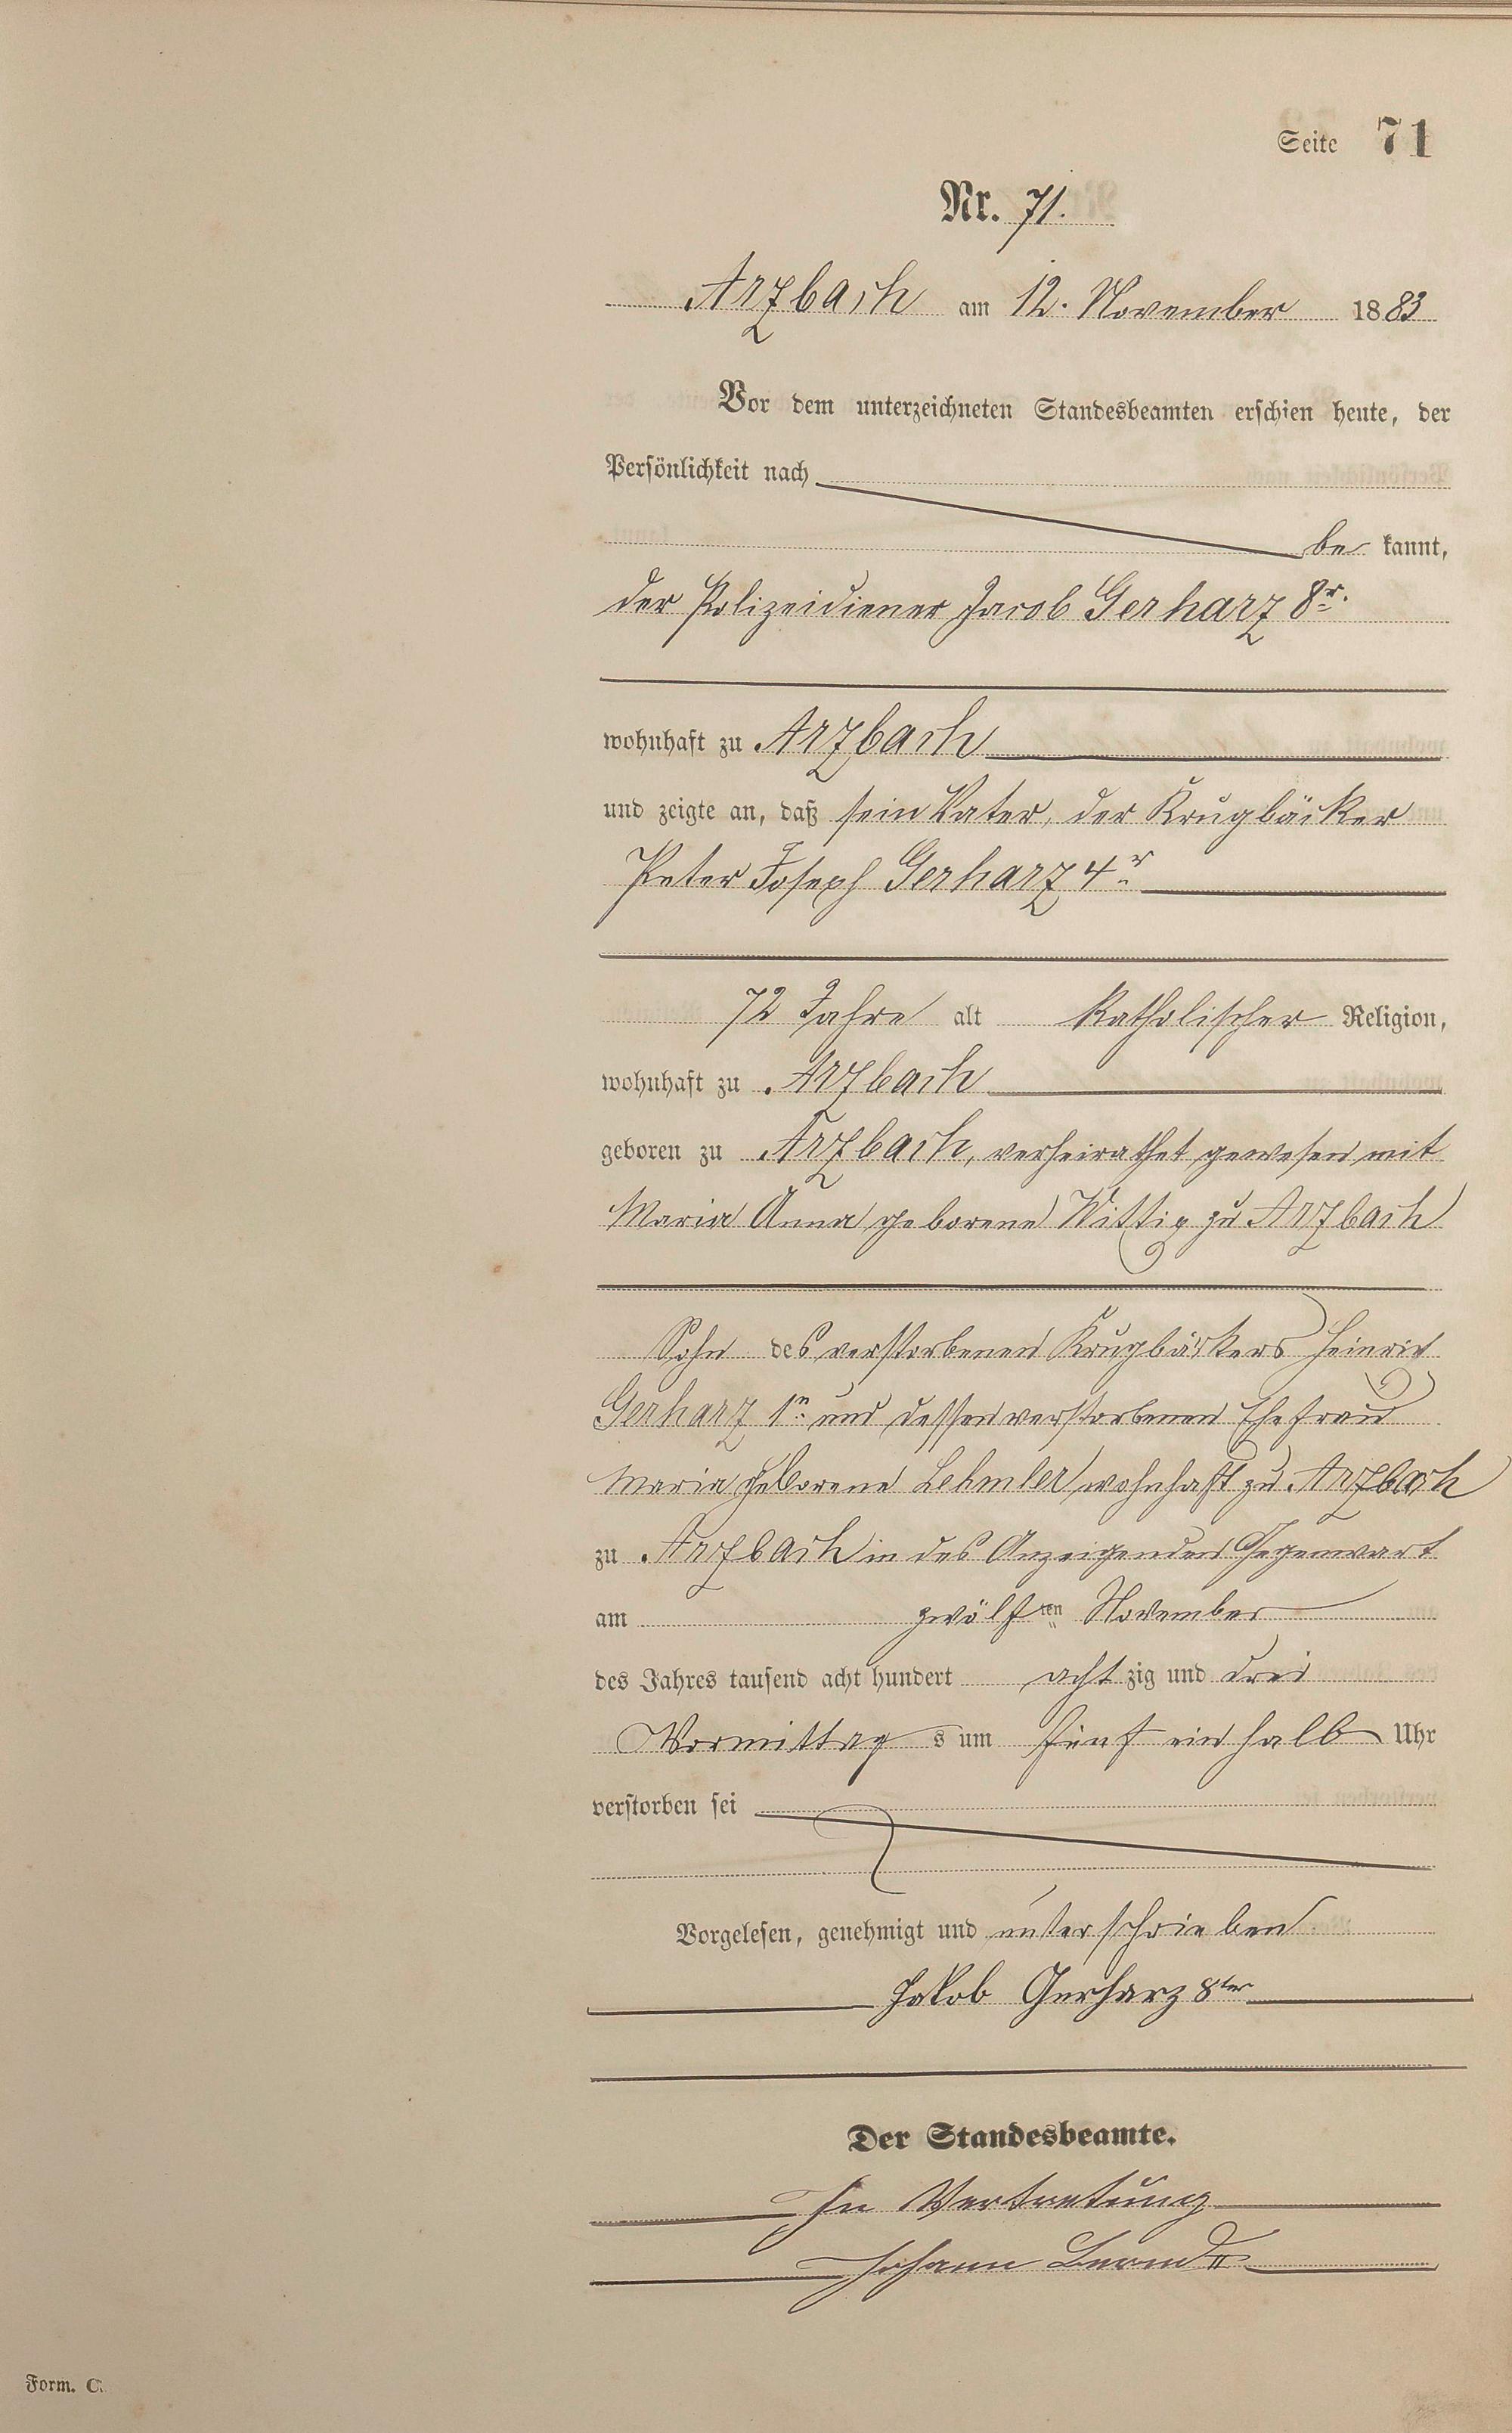 Seite 71
Nr. 71.
Arzbach am 12. November 1883
Vor dem unterzeichneten Standesbeamten erschien heute, der
Persönlichkeit nach
be kannt,
der Polizeidiener Jacob Gerharz 8r.
wohnhaft zu Arzbach
und zeigte an, daß sein Vater, der Krugbäcker
Peter Joseph Gerharz 4r
72 Jahre alt katholischer Religion,
wohnhaft zu Arzbach
geboren zu Arzbach, verheirathet gewesen mit
Maria Anna geborene Wittig zu Arzbach
Sohn des verstorbenen Krugbäckers Heinrich
Gerharz 1n und dessen verstorbenen Ehefrau
Maria geborene Lehmler wohnhaft zu Arzbach
zu Arzbach in des Anzeigenden Gegenwart
am zwölf ten November
des Jahres tausend acht hundert acht zig und drei
Vormittag s um fünf ein halb Uhr
verstorben sei
Vorgelesen, genehmigt und unterschrieben
Jakob Gerharz 8ter
Der Standesbeamte.
In Vertretung
Johann
Form. C.